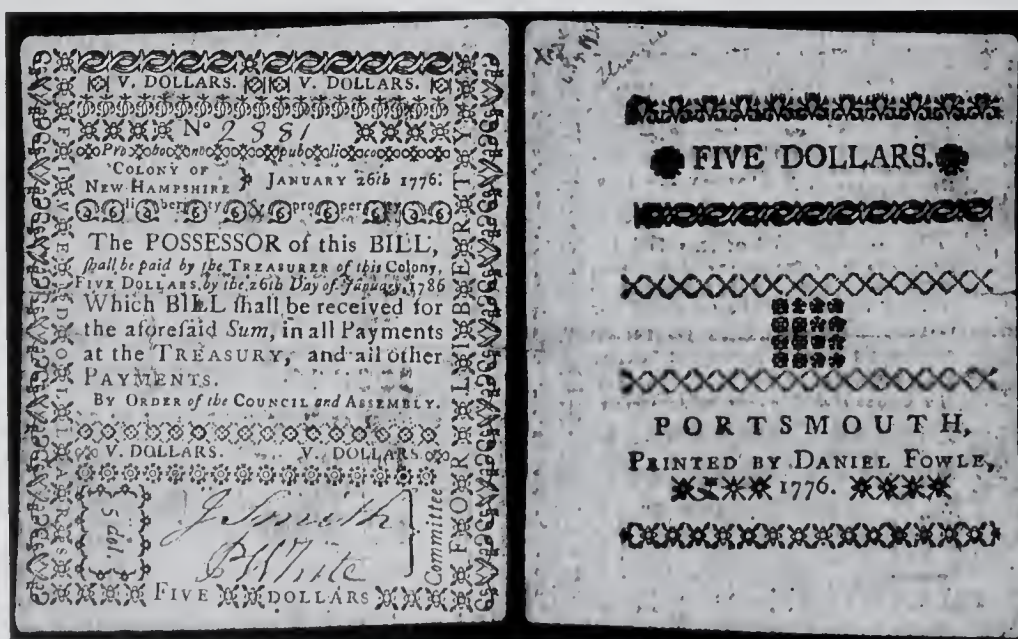 V. DOLLARS. V. DOLLARS.
No 2381
Pro bono publico
COLONY OF
NEW-HAMPSHIRE } JANUARY 26th 1776.
liberty & property
The POSSESSOR of this BILL,
ſhall be paid by the TREASURER of this Colony,
FIVE DOLLARS, by the 26th Day of January, 1786
Which BILL ſhall be received for
the aforeſaid Sum, in all Payments
at the TREASURY, and all other
PAYMENTS.
BY ORDER of the COUNCIL and ASSEMBLY.
V. DOLLARS. V. DOLLARS.
5 dol.
J Smith
P White
Committee
FIVE DOLLARS
FIVE 5 DOLLARS
FOR LIBERTY
FIVE DOLLARS.
PORTSMOUTH,
PRINTED BY DANIEL FOWLE,
1776.